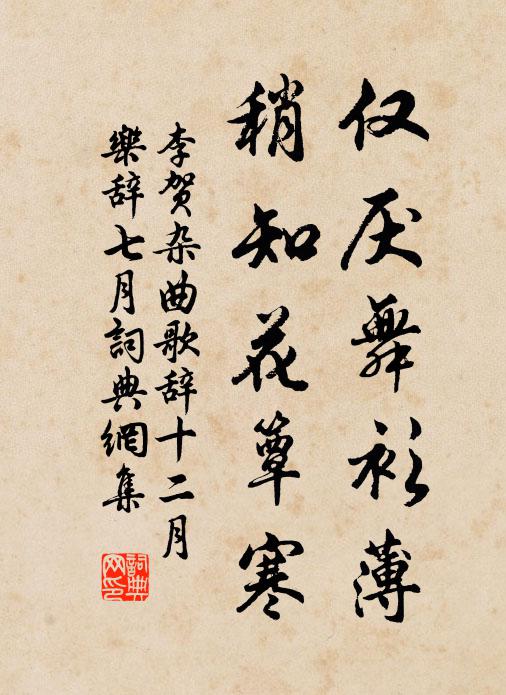 仅厌舞衫薄
稍知花簟寒
李贺杂曲歌辞十二月
樂辞七月詞典網集
詞典
网印